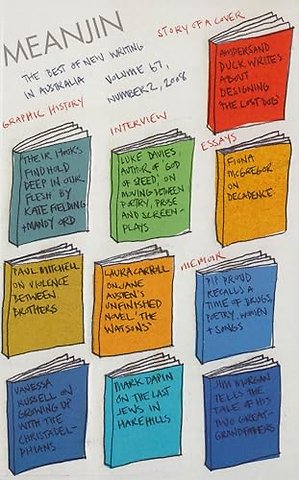 MEANJIN
THE BEST OF NEW WRITING
IN AUSTRALIA
VOLUME 67,
NUMBER 2, 2008
STORY OF A COVER
AMPERSAND
DUCK WRITES
ABOUT
DESIGNING
'THE LOST DOG'
GRAPHIC HISTORY
'THEIR HOOKS
FIND HOLD
DEEP IN OUR
FLESH' BY
KATE FIELDING
+MANDY ORD
INTERVIEW
LUKE DAVIES
AUTHOR OF 'GOD
OF SPEED' ON
MOVING BETWEEN
POETRY, PROSE
AND SCREEN-
PLAYS
ESSAYS
FIONA
McGREGOR
ON
DECADENCE
PAUL MITCHELL
ON VIOLENCE
BETWEEN
BROTHERS
LAURA CARROLL
ON JANE
AUSTEN'S
UNFINISHED
NOVEL 'THE
WATSONS'
MEMOIR
PIP PROUD
RECALLS A
TIME OF DRUGS,
POETRY, WOMEN
+ SONGS
VANESSA
RUSSELL ON
GROWING UP
WITH THE
CHRISTADEL-
PHIANS
MARK DAPIN
ON THE LAST
JEWS IN
HAREHILLS
JIM MORGAN
TELLS THE
TALE OF HIS
TWO GREAT-
GRANDFATHERS